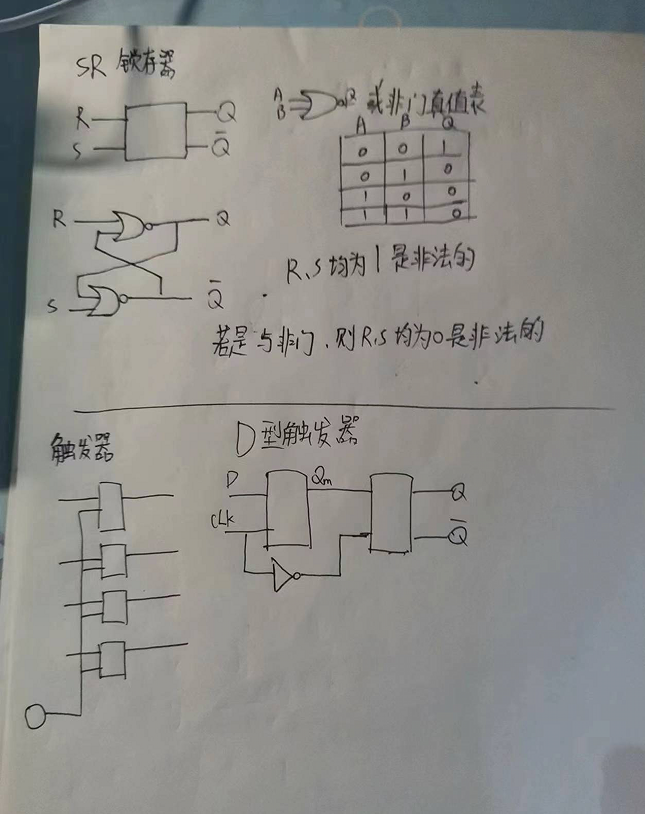 SR 锁存器
R
S
Q
Q̅
A
B
Q
或非门真值表
A B Q
0 0 1
0 1 0
1 0 0
1 1 0
R
Q
S
Q̅
R,S均为1是非法的
若是与非门,则R,S均为0是非法的
触发器
D型触发器
D
Qm
CLK
Q
Q̅